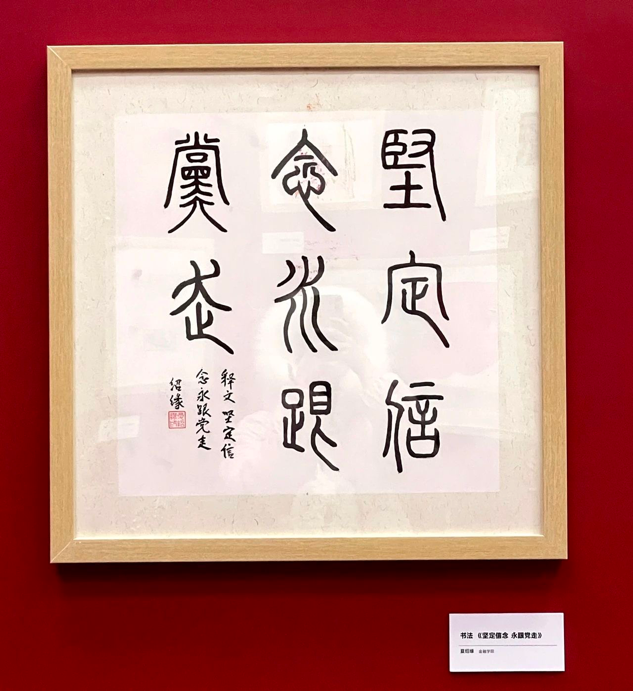 堅定信
念永跟
黨走
释文 坚定信
念永跟党走
绍缘
书法 《坚定信念 永跟党走》
金融学院